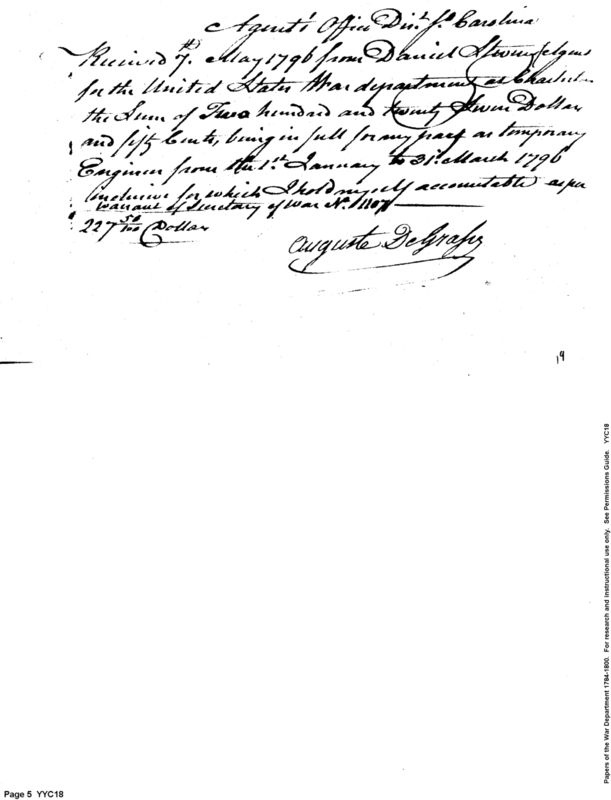 Agents Office Dist. So. Carolina
Received 7th. May 1796 from Daniel Stevens Agent
for the United States War department at Charleston
the Sum of Two hundred and twenty Seven Dollar
and fifty Cents, being in full for my pay as temporary
Engineer from the 1st. January to 31. March 1796
inclusive for which I hold myself accountable as per
warant of Secretary of War No.
227 50/100 Dollar
Auguste DeGrasse
19
Papers of the War Department 1784-1800. For research and instructional use only. See Permissions Guide. YYC18
Page 5 YYC18